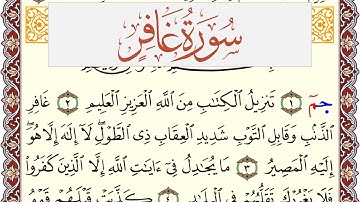 سُورَةُ غَافِرٍ
حمٓ ١ تَنزِيلُ ٱلْكِتَٰبِ مِنَ ٱللَّهِ ٱلْعَزِيزِ ٱلْعَلِيمِ ٢ غَافِرِ
ٱلذَّنۢبِ وَقَابِلِ ٱلتَّوْبِ شَدِيدِ ٱلْعِقَابِ ذِى ٱلطَّوْلِ ۖ لَآ إِلَٰهَ إِلَّا هُوَ ۖ
إِلَيْهِ ٱلْمَصِيرُ ٣ مَا يُجَٰدِلُ فِىٓ ءَايَٰتِ ٱللَّهِ إِلَّا ٱلَّذِينَ كَفَرُوا۟
فَلَا يَغْرُرْكَ تَقَلُّبُهُمْ فِى ٱلْبِلَٰدِ ٤ كَذَّبَتْ قَبْلَهُمْ قَوْمُ